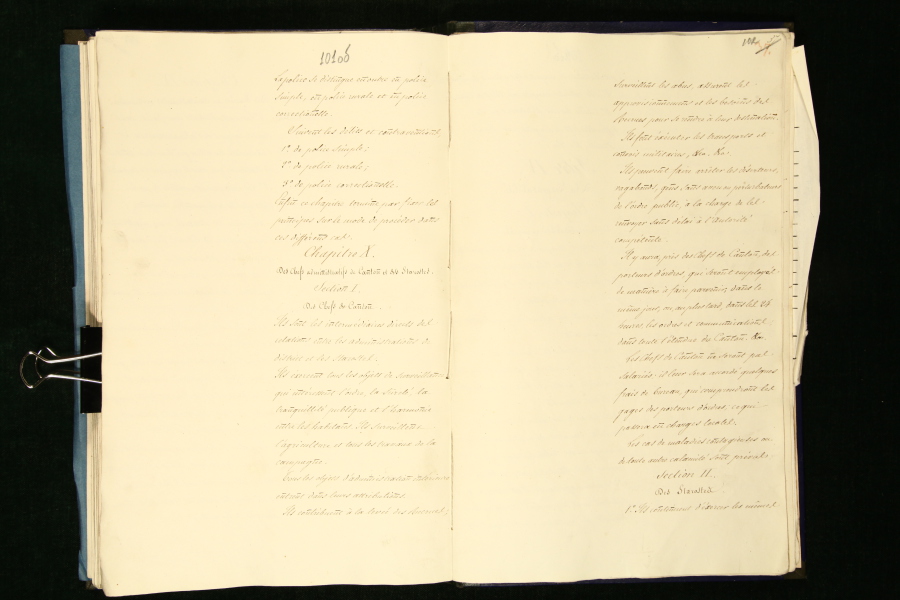 101 ob
La police se distingue en outre en police
simple, en police rurale et en police
correctionelle.
Suivent les délits et contraventions,
1° de police simple;
2° de police rurale;
3° de police correctionelle.
Enfin ce chapitre termine par fixer les
principes sur le mode de procéder dans
ces différents cas.
Chapitre X.
Des Chefs administratifs de Canton et des Starostes.
Section I.
Des Chefs de Canton.
Ils sont les intermédiaires directs des
relations entre les administrations de
district et les Starostes.
Ils exercent tous les objets de surveillance
qui intéressent l'ordre, la sûreté, la
tranquillité publique et l'harmonie
entre les habitans. Ils surveillent
l'agriculture et tous les travaux de la
campagne.
Tous les objets d'administration
entrent dans leurs attributions.
Ils contribuent à la levée des
102
surveillent les abus, assurent les
approvisionnements et les besoins des
pour se rendre à leur destination.
Ils font exécuter les transports et
convois militaires, &a. &a.
Ils peuvent faire arrêter les déserteurs,
vagabonds, gens sans aveu et perturbateurs
de l'ordre public, à la charge de les
renvoyer sans délai à l'autorité
compétente.
Il y aura, près des Chefs de Canton, des
porteurs d'ordres, qui seront employés
de manière à faire parvenir, dans le
même jour, ou, au plus tard, dans les 24
heures, les ordres et communications,
dans toute l'étendue du Canton. &a.
Les Chefs de Canton ne seront pas
salariés: il leur sera accordé quelques
frais de bureau, qui comprendront les
gages des porteurs d'ordres, ce qui
passera en charges locales.
Les cas de maladies contagieuses ou
de toute autre calamité sont prévus.
Section II.
Des Starostes.
1° Ils continueront d'exercer les mêmes